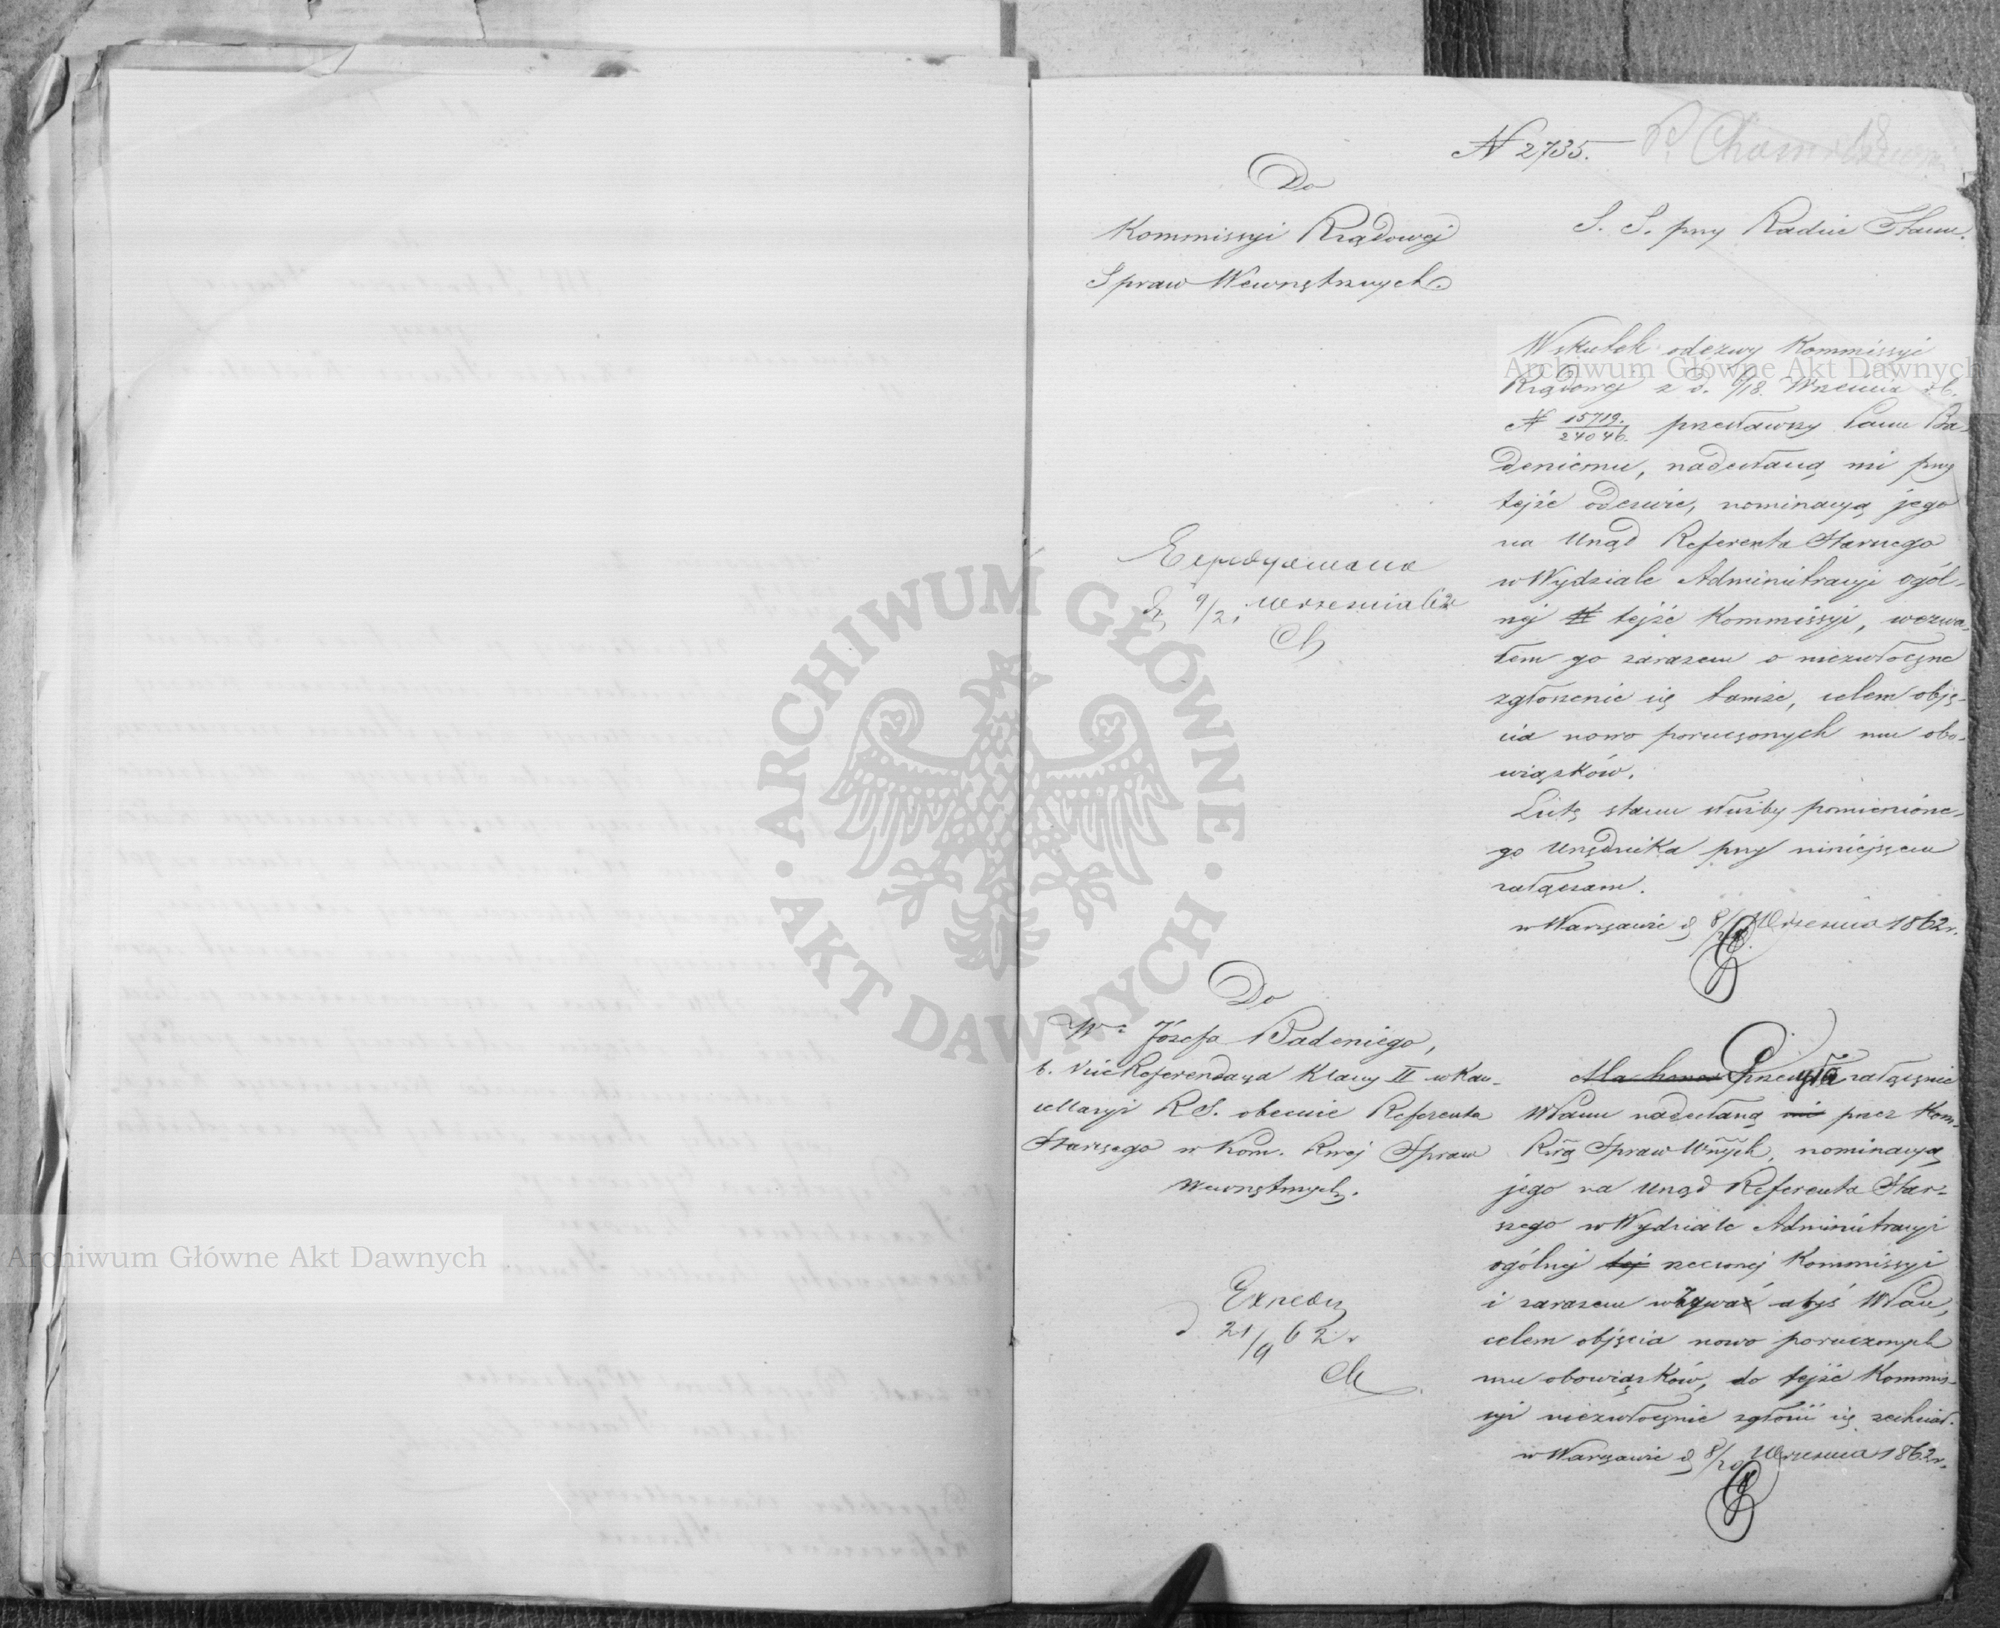 N 2735.
Do
Kommissyi Rządowej
Spraw Wewnętrznych
S. S. przy Radzie Stanu.
Wskutek odezwy Kommissyi
Rządowej z d. 6/18. Września r.b.
N 15719./24046. przesławszy Panu Ba-
deniemu, nadesłaną mi przy
tejże odezwie, nominacyą jego
na Urząd Referenta Starszego
w Wydziale Administracyi ogól-
nej tejże Kommissyi, wezwa-
łem go zarazem o niezwłoczne
zgłoszenie się tamże, celem obję-
cia nowo poruczonych mu obo-
wiązków.
Listę stanu służby pomienione-
go Urzędnika przy niniejszem
załączam.
w Warszawie d. 8/20 Września 1862 r.
d. 9/21 Września 62
Do
Wo Józefa Badeniego,
b. Vice Referendarza Klassy II w Kan-
cellaryi R.S. obecnie Referenta
Starszego w Kom. Rwej Spraw
Wewnętrznych.
przesyła załącznie
WPanu nadesłaną mi przez Kom.
Rzą Spraw Wnych, nominacyą
jego na Urząd Referenta Star-
szego w Wydziale Administracyi
ogólnej tej rzeczonej Kommissyi
i zarazem wzywać abyś WPan,
celem objęcia nowo poruczonych
mu obowiązków, do tejże Kommis-
syi niezwłocznie zgłosić się zechciał.
w Warszawie d. 8/20 Września 1862 r.
Exped
d. 21/9 62 r
Archiwum Główne Akt Dawnych
Archiwum Główne Akt Dawnych
ARCHIWUM GŁÓWNE · AKT DAWNYCH ·